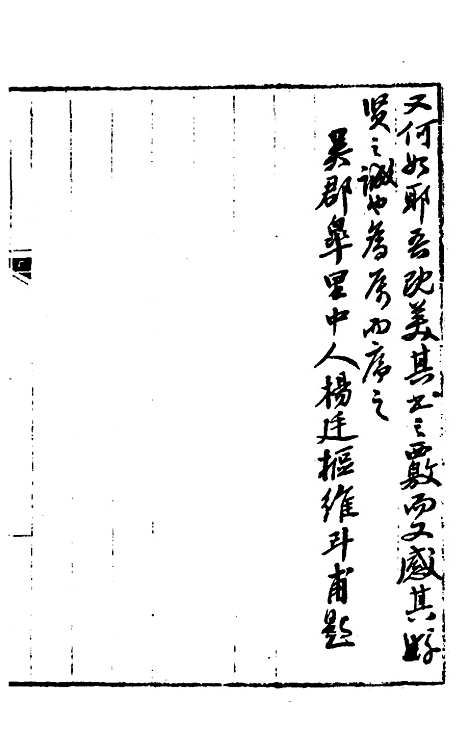 又何如耶吾既美其書之覈而又感其好
賢之誠也爲序而序之
吳郡皐里中人楊廷樞維斗甫題